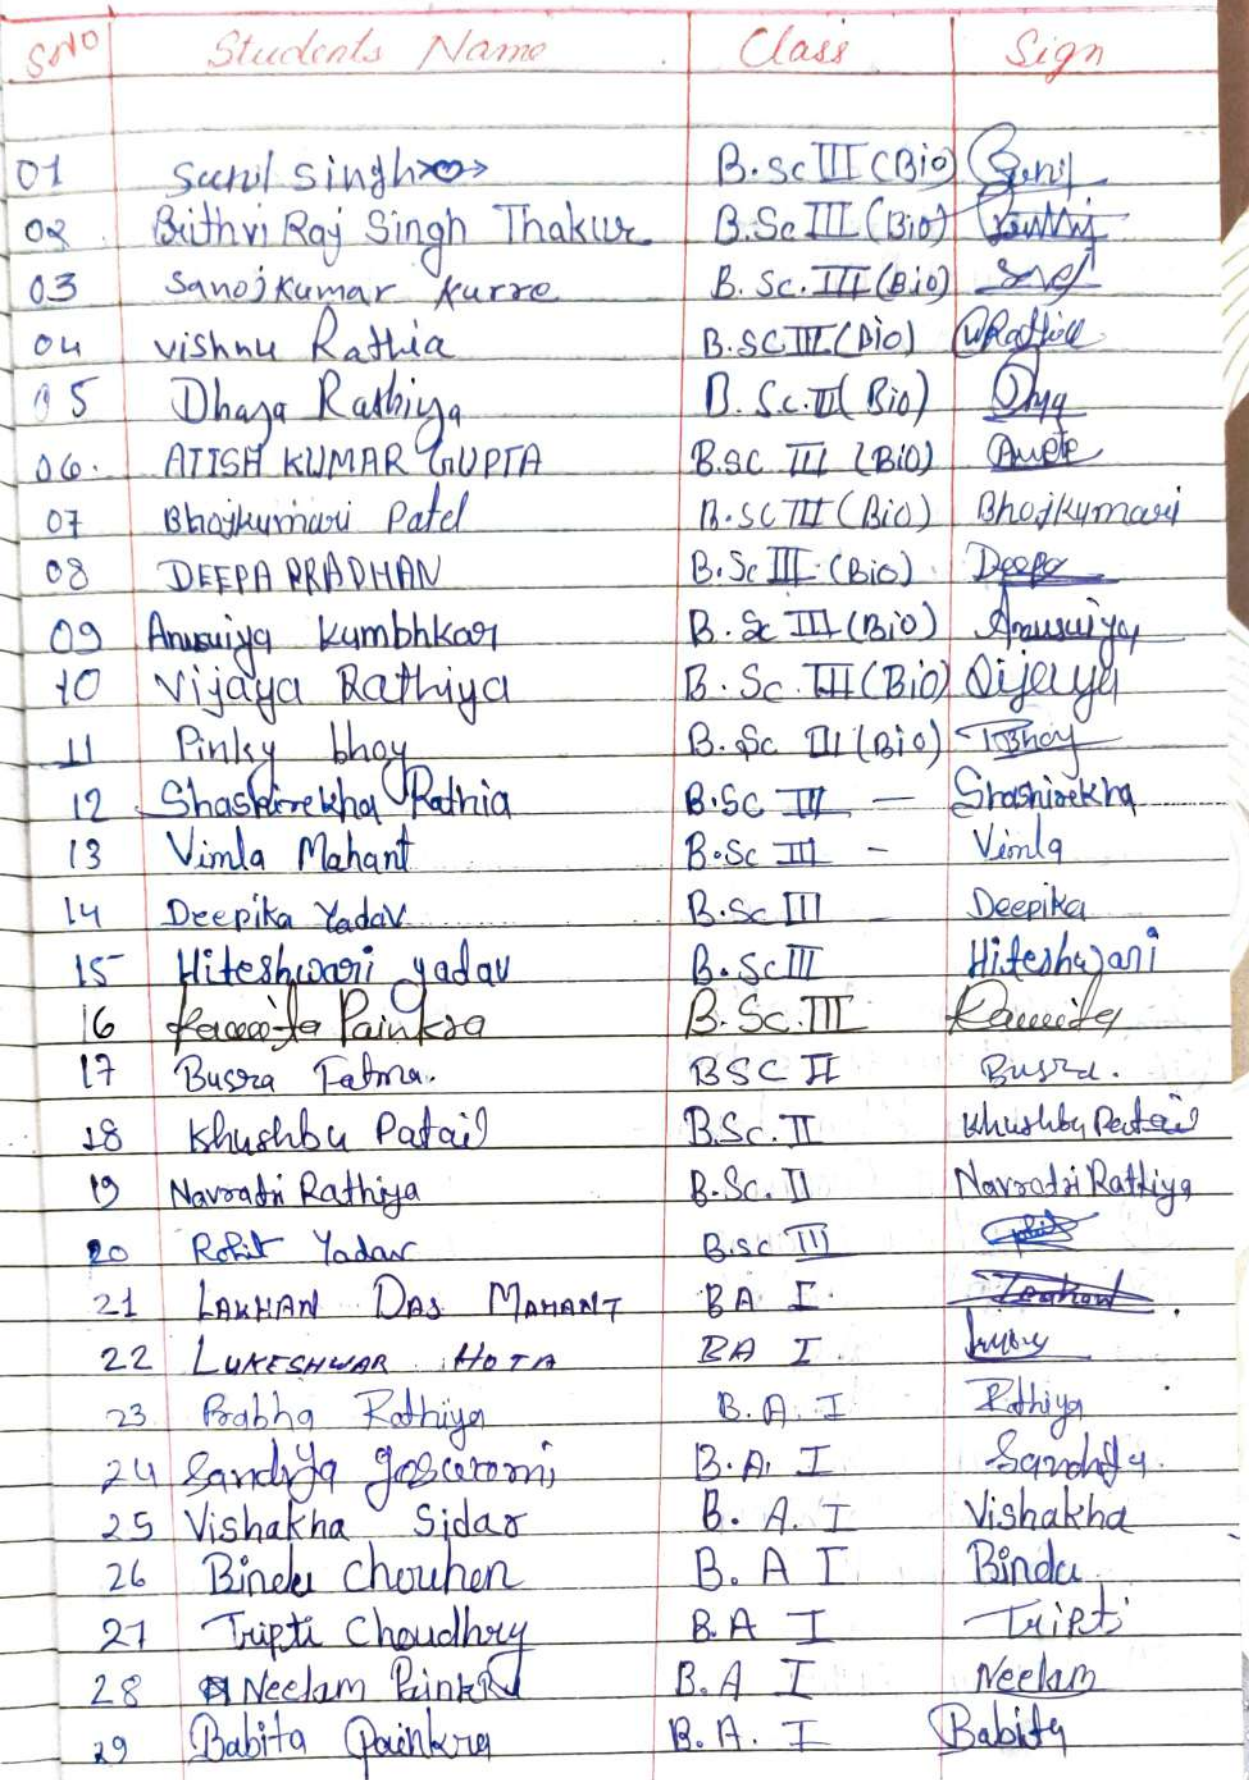 SNO Students Name Class Sign
01 Sunil Singh B.Sc III (Bio) Sunil
02 Prithvi Raj Singh Thakur B.Sc III (Bio)
03 Sanoj Kumar Kurre B. Sc. III (Bio)
04 vishnu Rathia B.SC III (Bio)
05 Dhaja Rathiya B. S.c. III (Bio)
06. ATISH KUMAR GUPTA B.SC III (BiO)
07 Bhojkumari Patel B.SC III (Bio) Bhojkumari
08 DEEPA PRADHAN B.Sc III (Bio) Deepa
09 Anusuiya Kumbhkar B. Sc III (Bio) Anusuiya
10 Vijaya Rathiya B. Sc. III (Bio) Vijaya
11 Pinky bhoy B. Sc III (Bio) Bhoy
12 Shashirekha Rathia B.SC III — Shashirekha
13 Vimla Mahant B.Sc III - Vimla
14 Deepika Yadav B.Sc III Deepika
15 Hiteshwari yadav B.Sc III Hiteshwari
16 Kawita Painkra B.Sc. III Kawita
17 Busra Fatma. BSC II Busra.
18 Khushbu Patail B.Sc. II Khushbu Patail
19 Navratri Rathiya B.Sc. II Navratri Rathiya
20 Rohit Yadav B.sc III
21 LAKHAN DAS MAHANT BA I.
22 LUKESHWAR HOTA BA I.
23 Prabha Rathiya B.A. I Rathiya
24 Sandhya goswami B.A. I Sandhya.
25 Vishakha Sidar B. A. I Vishakha
26 Bindu Chouhen B. A I Bindu
27 Tripti Choudhry B.A I Tripti
28 Neelam Painkra B.A I Neelam
29 Babita Painkra B.A. I Babita